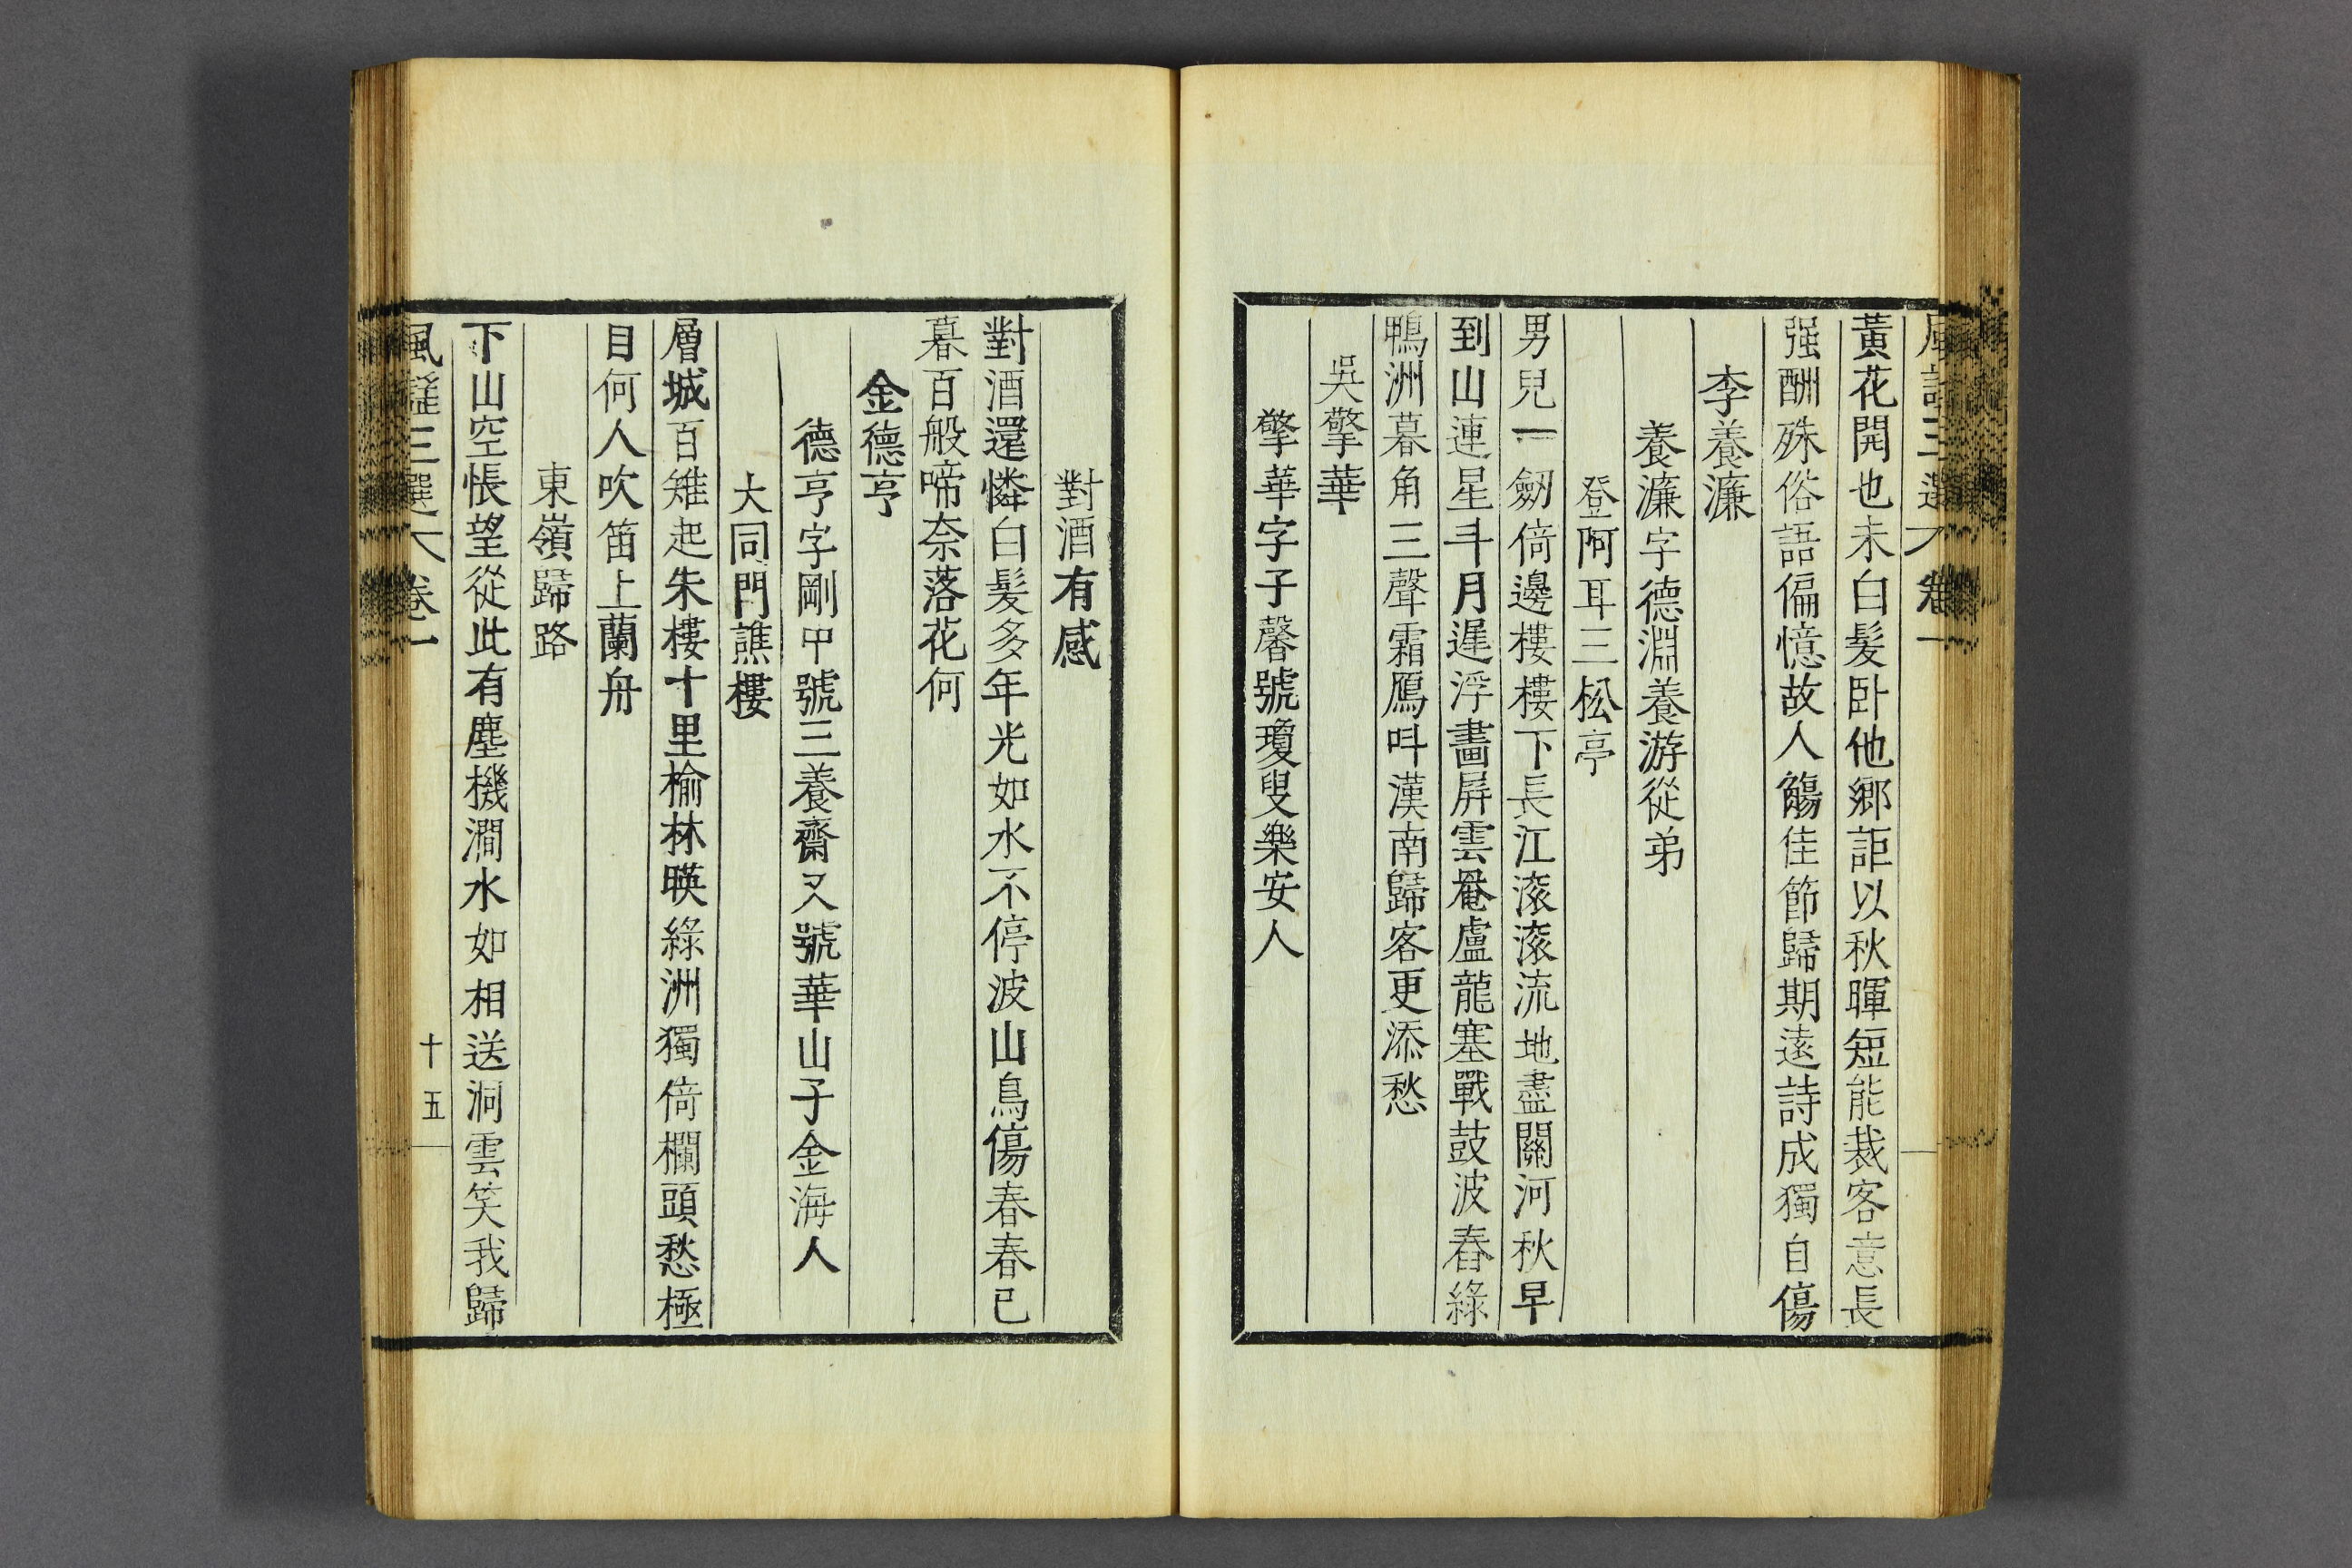 風謠三選 卷一
黃花開也未白髮卧他鄉詎以秋暉短能裁客意長
强酬殊俗語偏憶故人觴佳節歸期遠詩成獨自傷
李養濂
養濂字德淵養游從弟
登阿耳三松亭
男兒一劒倚邊樓樓下長江滚滚流地盡關河秋早
到山連星斗月遲浮畵屏雲罨盧龍塞戰鼓波舂綠
鴨洲暮角三聲霜鴈呌漢南歸客更添愁
吳擎華
擎華字子馨號瓊叟樂安人
對酒有感
對酒還憐白髮多年光如水不停波山鳥傷春春已
暮百般啼奈落花何
金德亨
德亨字剛中號三養齋又號華山子金海人
大同門譙樓
層城百雉起朱樓十里榆林暎綠洲獨倚欄頭愁極
目何人吹笛上蘭舟
東嶺歸路
下山空悵望從此有塵機澗水如相送洞雲笑我歸
風謠三選 卷一
十五